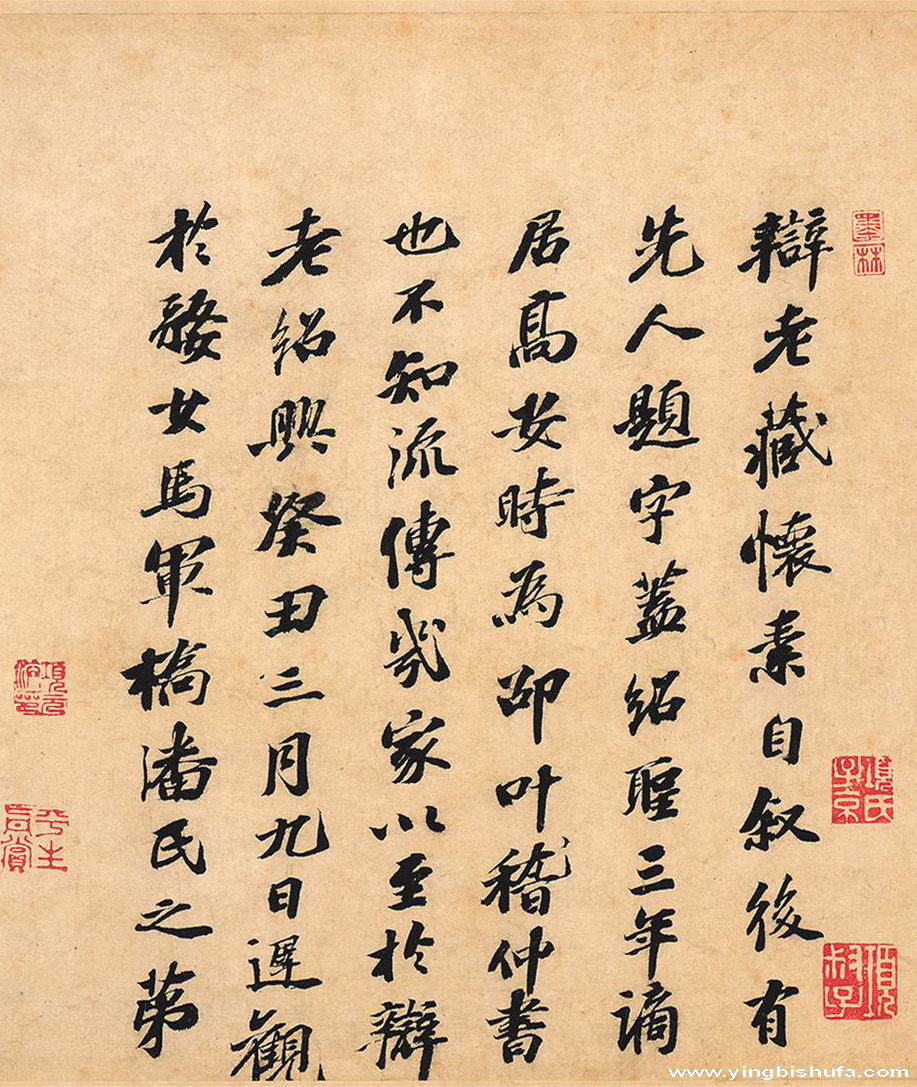 辯老藏懷素自叙後有
先人題字蓋紹聖三年謫
居高安時為邵叶稽仲書
也不知流傳幾家以至於辯
老紹興癸丑三月九日遲觀
於婺女馬軍橋潘氏之第
墨林
項氏子京
項叔子
項元汴印
平生真賞
www.yingbishufa.com